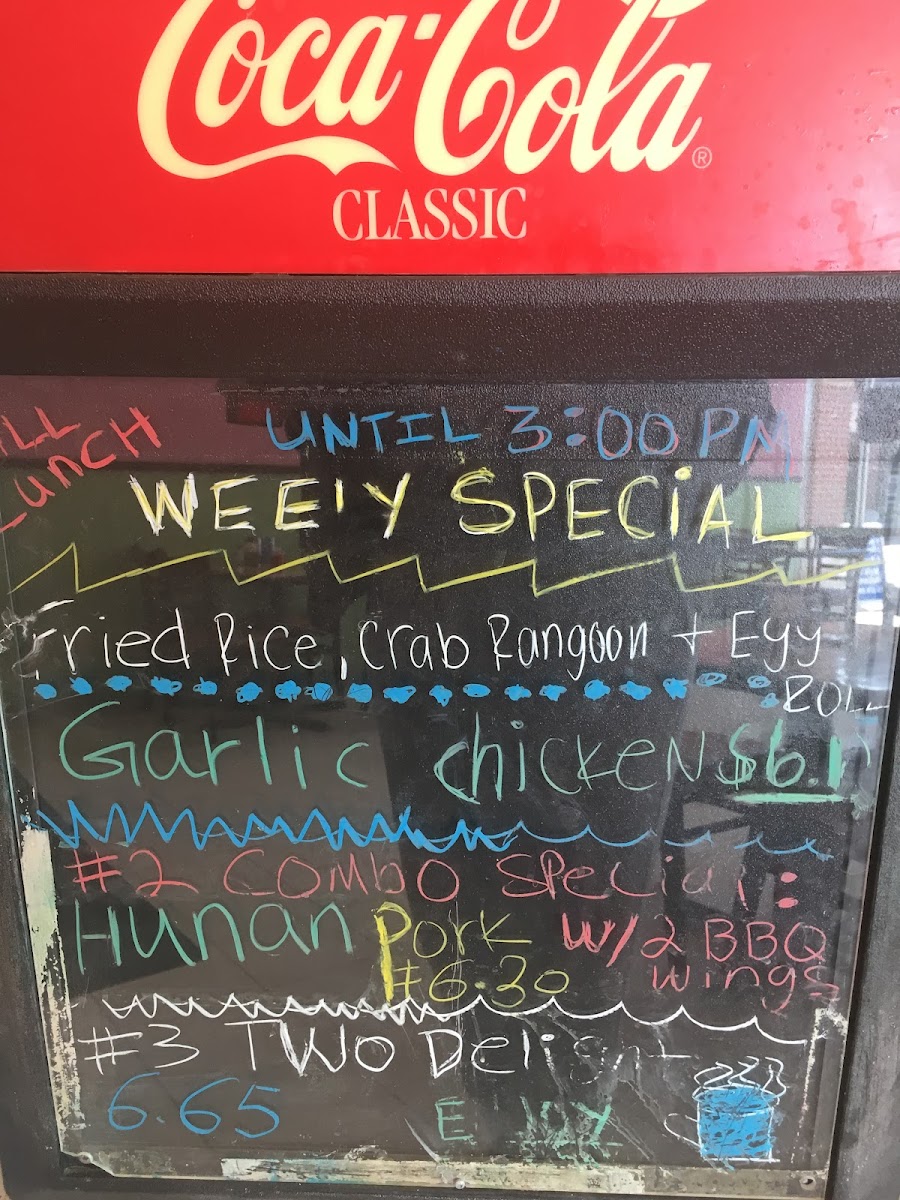 Coca-Cola
®
CLASSIC
LUNCH
UNTIL 3:00 PM
WEE'Y SPECIAL
Fried Rice, Crab Rangoon + Egg
ROLL
Garlic chicken
#2 COMBO Special:
Hunan Pork W/2 BBQ
#6.30 wings
#3 TWO Delight
6.65